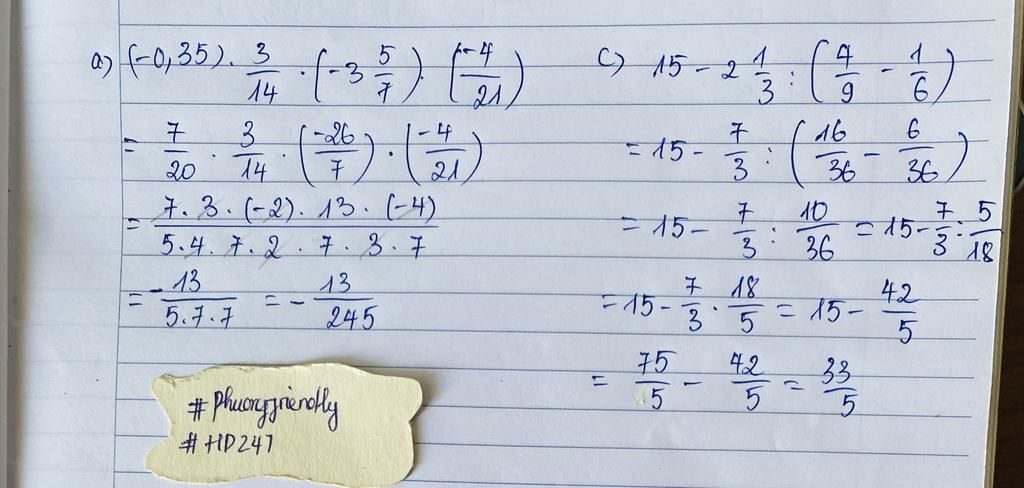 a) (-0,35) . 3/14 . (-3 5/7) . (-4/21)
= 7/20 . 3/14 . (-26/7) . (-4/21)
= 7 . 3 . (-2) . 13 . (-4) / 5.4 . 7 . 2 . 7 . 3 . 7
= -13/5.7.7 = - 13/245
c) 15 - 2 1/3 : (4/9 - 1/6)
= 15 - 7/3 : (16/36 - 6/36)
= 15 - 7/3 : 10/36 = 15 - 7/3 : 5/18
= 15 - 7/3 . 18/5 = 15 - 42/5
= 75/5 - 42/5 = 33/5
# HD247